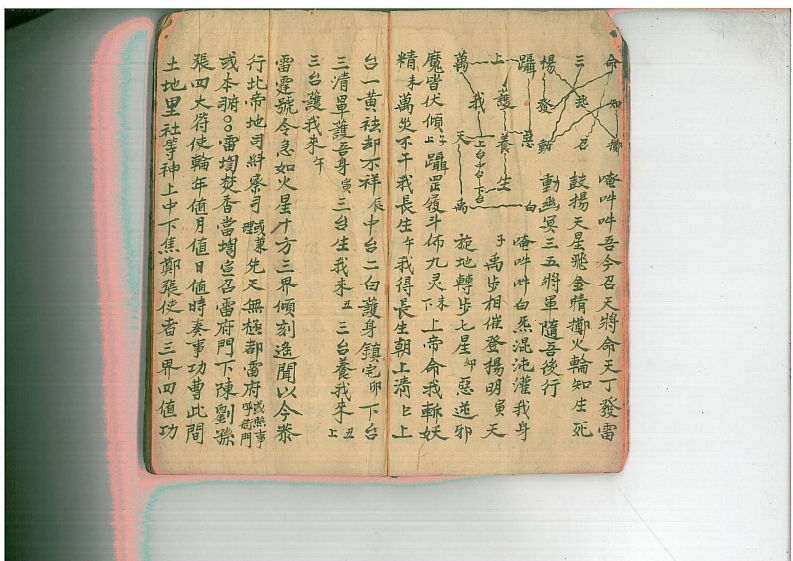 命 知 擲 唵吽吽吾今召天將命天丁發雷
三 召 鼓揚天星飛金睛擲火輪知生死
揚 發 動 動幽冥三五將軍隨吾後行
躡 罡 白 唵吽吽白炁混沌灌我身
上 護 養 生 子禹步相催登揚明寅天
萬 我 天 禹 旋地轉步七星卯惡逆邪
上台中台下台
魔皆伏傾子上躡罡履斗佈九灵未下上帝命我斬妖
精未萬災不干我長生午我得長生朝上清巳上
台一黄祛却不祥辰中台二白護身鎮宅卯下台
三清罩護吾身寅三台生我来丑三台養我来丑上
三台護我来午
雷霆號令急如火星十方三界傾刻遙聞以今恭
行北帝地司糾察司或兼理先天無極都雷府或照事呼衙門
或本靖〇〇雷壇焚香當壇宣召雷府門下陳劉孫
張四大符使輪年值月值日值時奏事功曹此間
土地里社等神上中下焦鄭張使者三界四值功